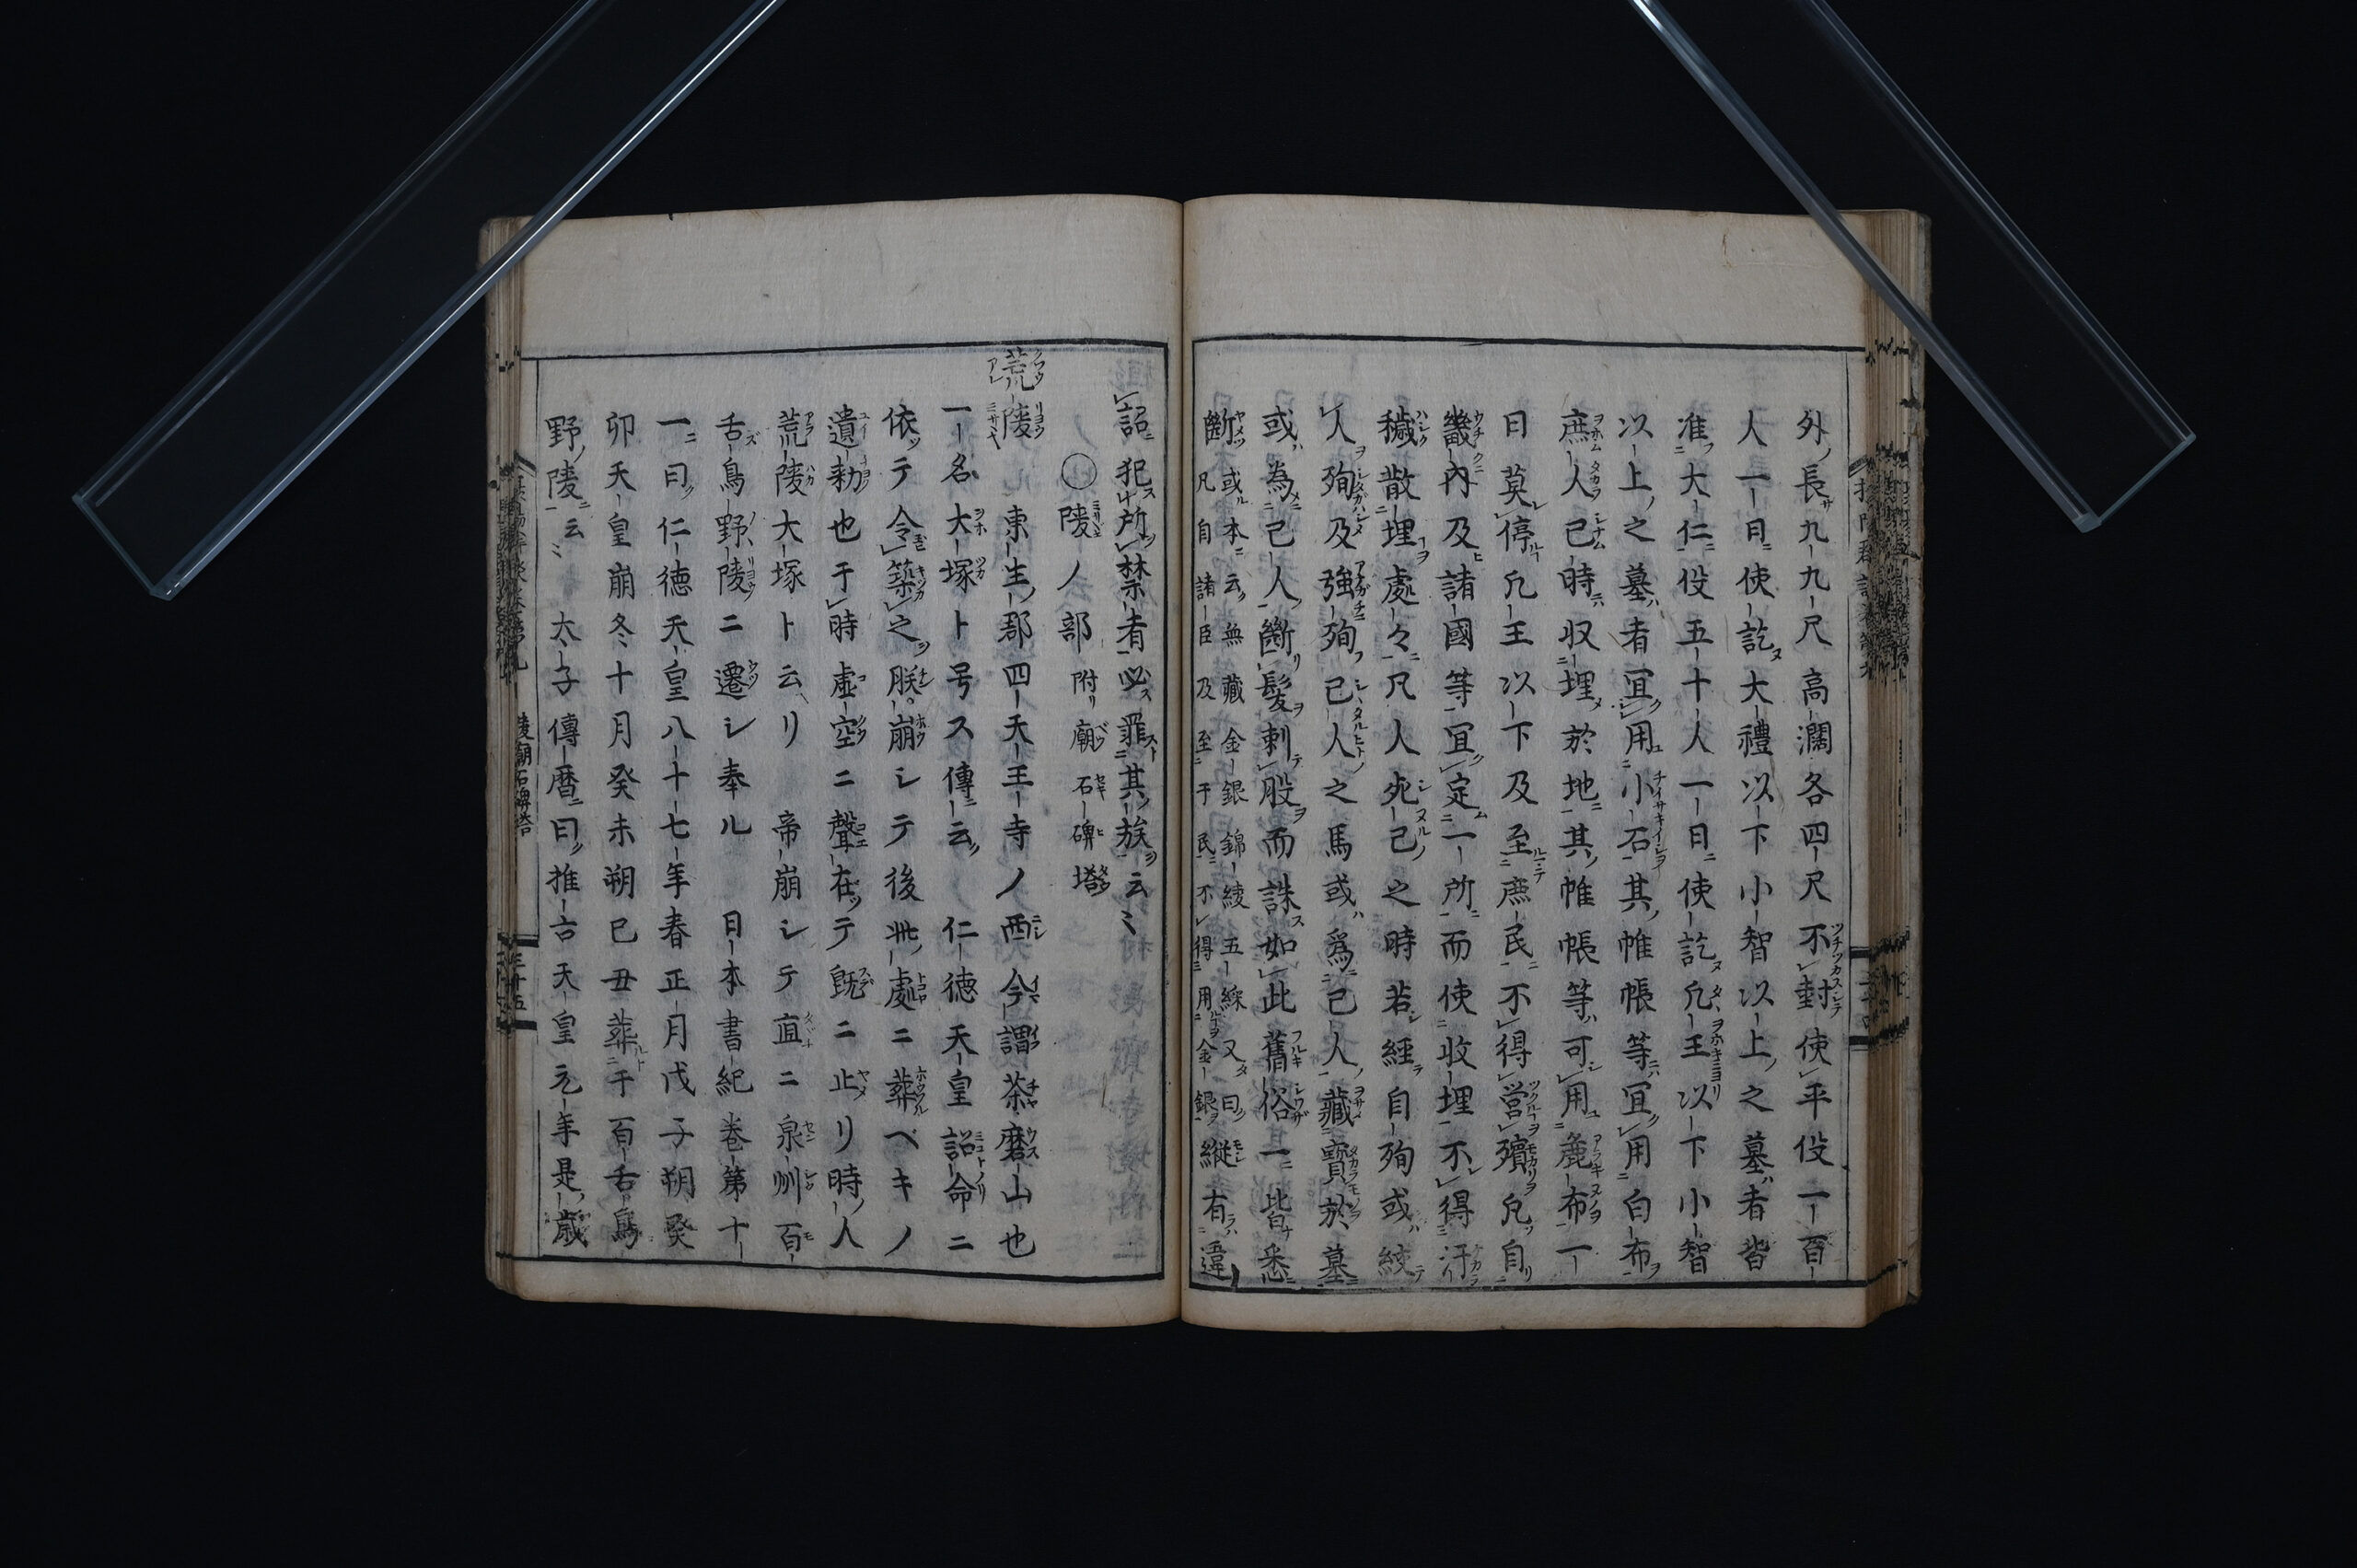 外長九九尺高濶各四尺不封使平役一百
人一日使訖大禮以下小智以上之墓者皆
准大仁役五十人一日使訖凡王以下小智
以上之墓者宜用小石其帷帳等宜用白布
庶人已時収埋於地其帷帳等可用麁布一
日莫停凡王以下及至庶民不得営殯凡自
畿内及諸國等宜定一所而使收埋不得汙
穢散埋處々凡人死已之時若經自殉或絞
人殉及強殉己人之馬或爲己人藏寶於墓
或為己人斷髮刺股而誄如此舊俗一皆悉
斷或本云無藏金銀錦綾五綵又曰
凡自諸臣及至于民不得用金銀縦有違
詔犯所禁者必罪其族云〻
〇陵ノ部附リ廟石碑塔
荒陵東生郡四天王寺ノ西今謂茶磨山也
一名大塚ト号ス傳云仁徳天皇詔命ニ
依テ令築之朕崩シテ後此處ニ葬ベキノ
遺勅也于時虚空ニ聲在テ既ニ止リ時人
荒陵大塚ト云リ帝崩シテ直ニ泉州百
舌鳥野陵ニ遷シ奉ル日本書紀巻第十
一曰仁徳天皇八十七年春正月戊子朔癸
卯天皇崩冬十月癸未朔己丑葬于百舌鳥
野陵云〻太子傳暦曰推古天皇元年是歳
陵廟石碑塔
三十五